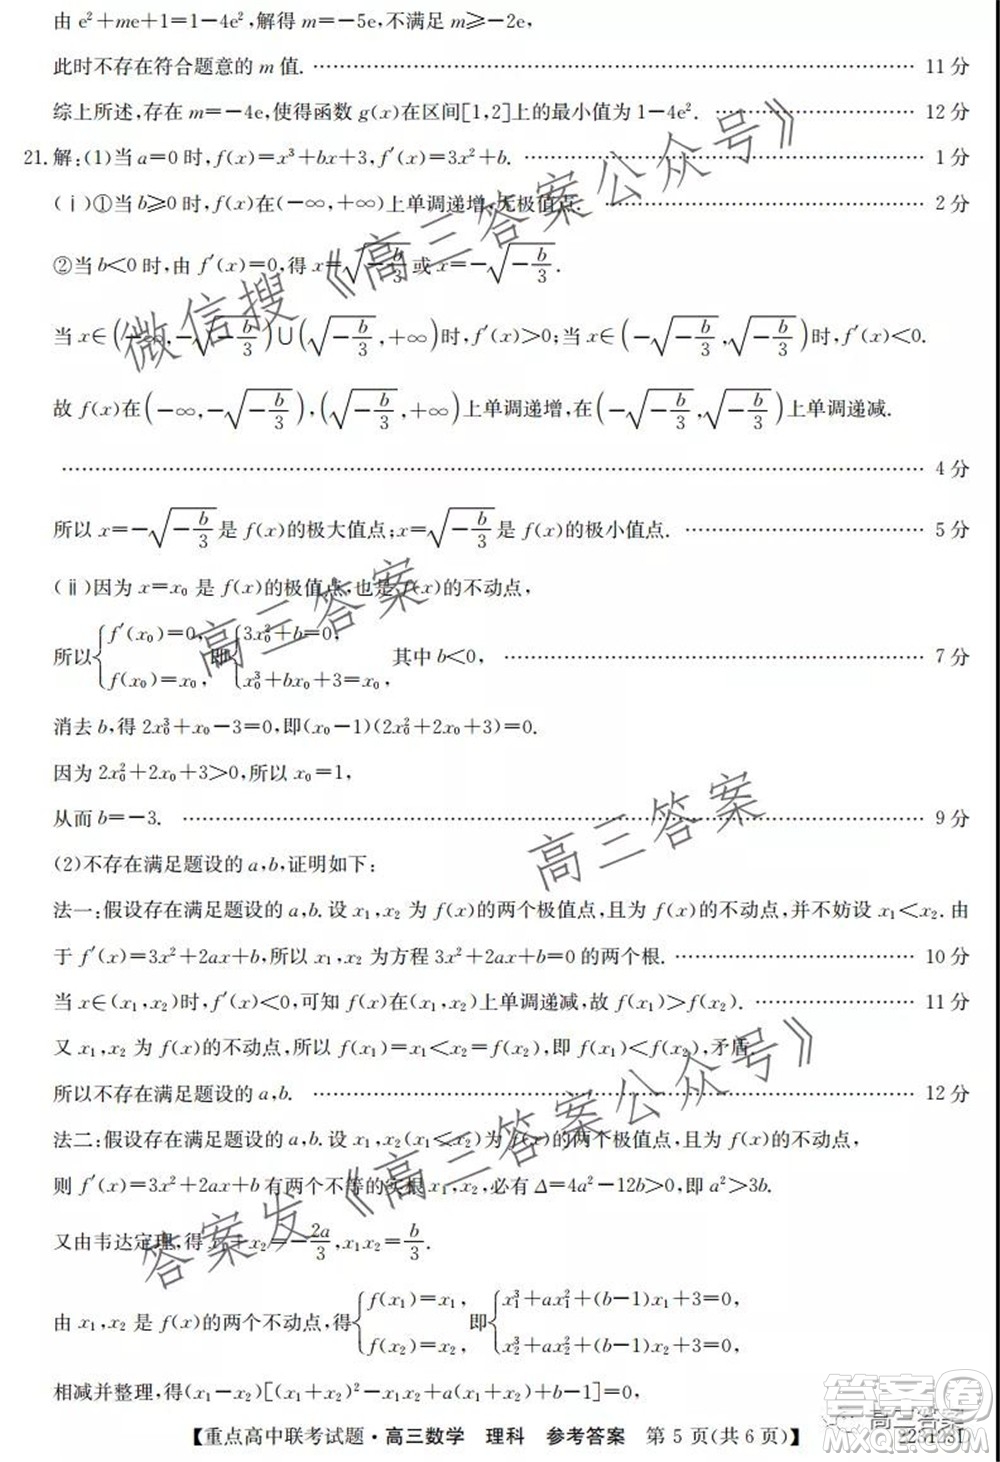 由 e²+me+1=1-4e²,解得 m=-5e,不满足 m≥-2e,
此时不存在符合题意的 m 值. …… 11 分
综上所述,存在 m=-4e,使得函数 g(x)在区间[1,2]上的最小值为 1-4e². …… 12 分
21.解:(1)当 a=0 时,f(x)=x³+bx+3,f′(x)=3x²+b. …… 1 分
(ⅰ)①当 b≥0 时,f(x)在(-∞,+∞)上单调递增,无极值点. …… 2 分
②当 b<0 时,由 f′(x)=0,得 x=√(-b/3) 或 x=-√(-b/3).
当 x∈(-∞,-√(-b/3))∪(√(-b/3),+∞)时,f′(x)>0;当 x∈(-√(-b/3),√(-b/3))时,f′(x)<0.
故 f(x)在(-∞,-√(-b/3)),(√(-b/3),+∞)上单调递增,在(-√(-b/3),√(-b/3))上单调递减.
…… 4 分
所以 x=-√(-b/3)是 f(x)的极大值点;x=√(-b/3)是 f(x)的极小值点. …… 5 分
(ⅱ)因为 x=x₀ 是 f(x)的极值点,也是 f(x)的不动点,
所以{f′(x₀)=0, f(x₀)=x₀, 即{3x₀²+b=0, x₀³+bx₀+3=x₀, 其中 b<0, …… 7 分
消去 b,得 2x₀³+x₀-3=0,即(x₀-1)(2x₀²+2x₀+3)=0.
因为 2x₀²+2x₀+3>0,所以 x₀=1,
从而 b=-3. …… 9 分
(2)不存在满足题设的 a,b,证明如下:
法一:假设存在满足题设的 a,b.设 x₁,x₂ 为 f(x)的两个极值点,且为 f(x)的不动点,并不妨设 x₁<x₂.由
于 f′(x)=3x²+2ax+b,所以 x₁,x₂ 为方程 3x²+2ax+b=0 的两个根. …… 10 分
当 x∈(x₁,x₂)时,f′(x)<0,可知 f(x)在(x₁,x₂)上单调递减,故 f(x₁)>f(x₂). …… 11 分
又 x₁,x₂ 为 f(x)的不动点,所以 f(x₁)=x₁<x₂=f(x₂),即 f(x₁)<f(x₂),矛盾.
所以不存在满足题设的 a,b. …… 12 分
法二:假设存在满足题设的 a,b.设 x₁,x₂(x₁<x₂)为 f(x)的两个极值点,且为 f(x)的不动点,
则 f′(x)=3x²+2ax+b 有两个不等的实根 x₁,x₂,必有 Δ=4a²-12b>0,即 a²>3b.
又由韦达定理,得 x₁+x₂=-2a/3,x₁x₂=b/3.
由 x₁,x₂ 是 f(x)的两个不动点,得{f(x₁)=x₁, f(x₂)=x₂, 即{x₁³+ax₁²+(b-1)x₁+3=0, x₂³+ax₂²+(b-1)x₂+3=0,
相减并整理,得(x₁-x₂)[(x₁+x₂)²-x₁x₂+a(x₁+x₂)+b-1]=0,
【重点高中联考试题·高三数学 理科 参考答案 第 5 页(共 6 页)】
微信搜《高三答案公众号》
高三答案
高三答案
答案发《高三答案公众号》
高三答案
答案圈